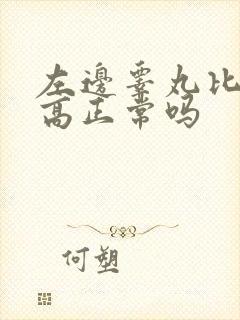 左邊睾丸比
高正常吗
何塑